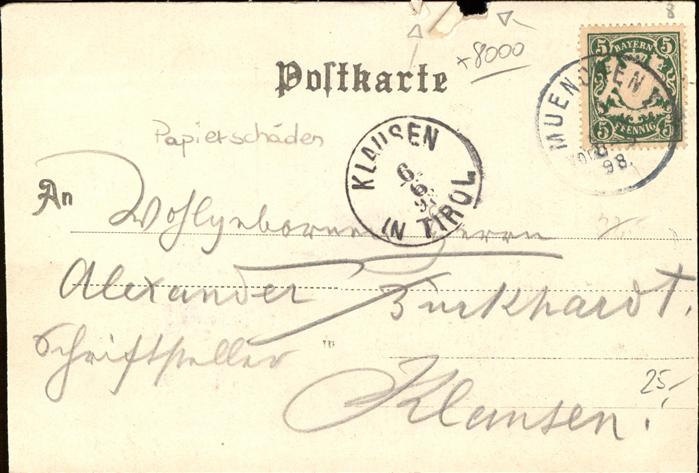 8
+8000
Postkarte
5 BAYERN 5
5 PFENNIG 5
MUENCHEN
98.
Papierschäden
KLAUSEN
6
6
98
IN TIROL
An Wohlgeboren Herrn
Alexander Burkhardt.
Schriftsteller
in
Klausen!
25,-